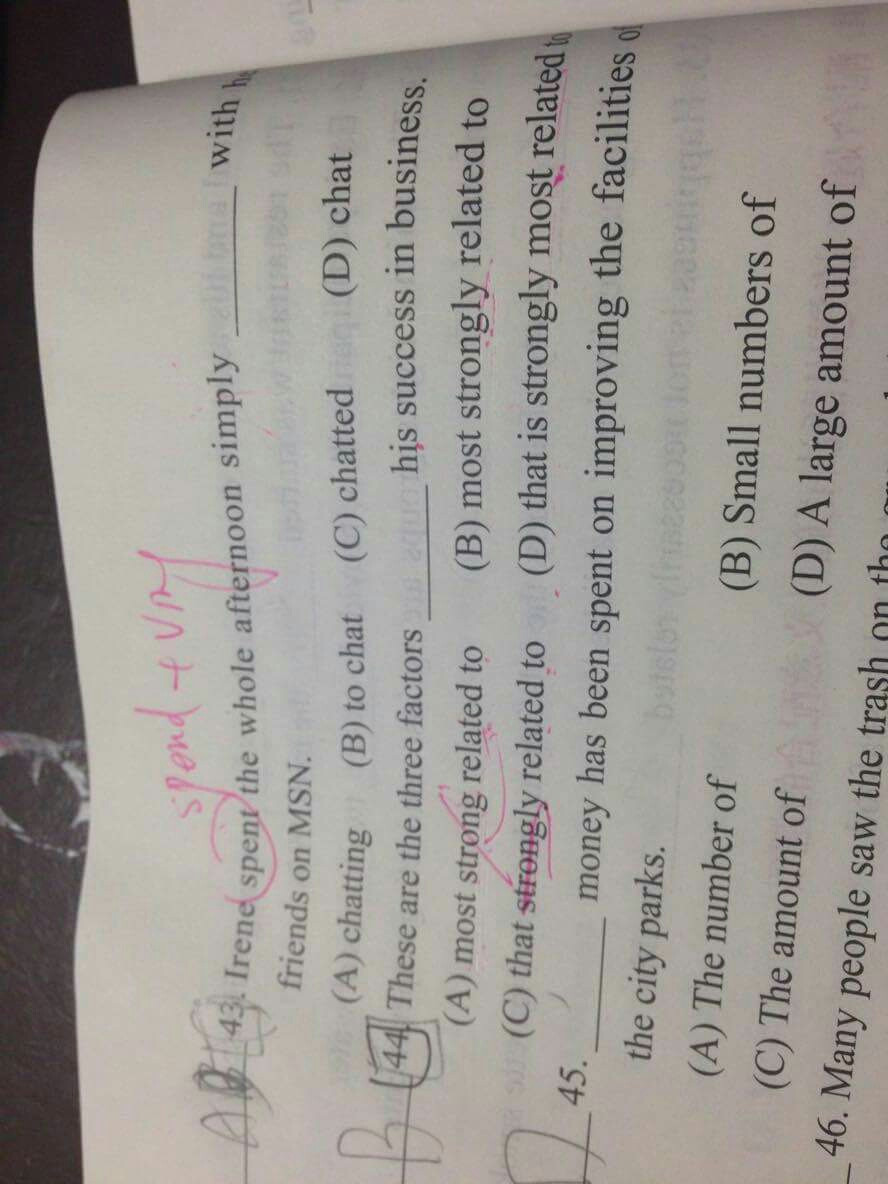 spend + Ving
A 43. Irene spent the whole afternoon simply ______ with
friends on MSN.
(A) chatting (B) to chat (C) chatted (D) chat
B 44. These are the three factors ______ his success in business.
(A) most strong related to (B) most strongly related to
(C) that strongly related to (D) that is strongly most related to
D 45. ______ money has been spent on improving the facilities of
the city parks.
(A) The number of (B) Small numbers of
(C) The amount of (D) A large amount of
46. Many people saw the trash on the